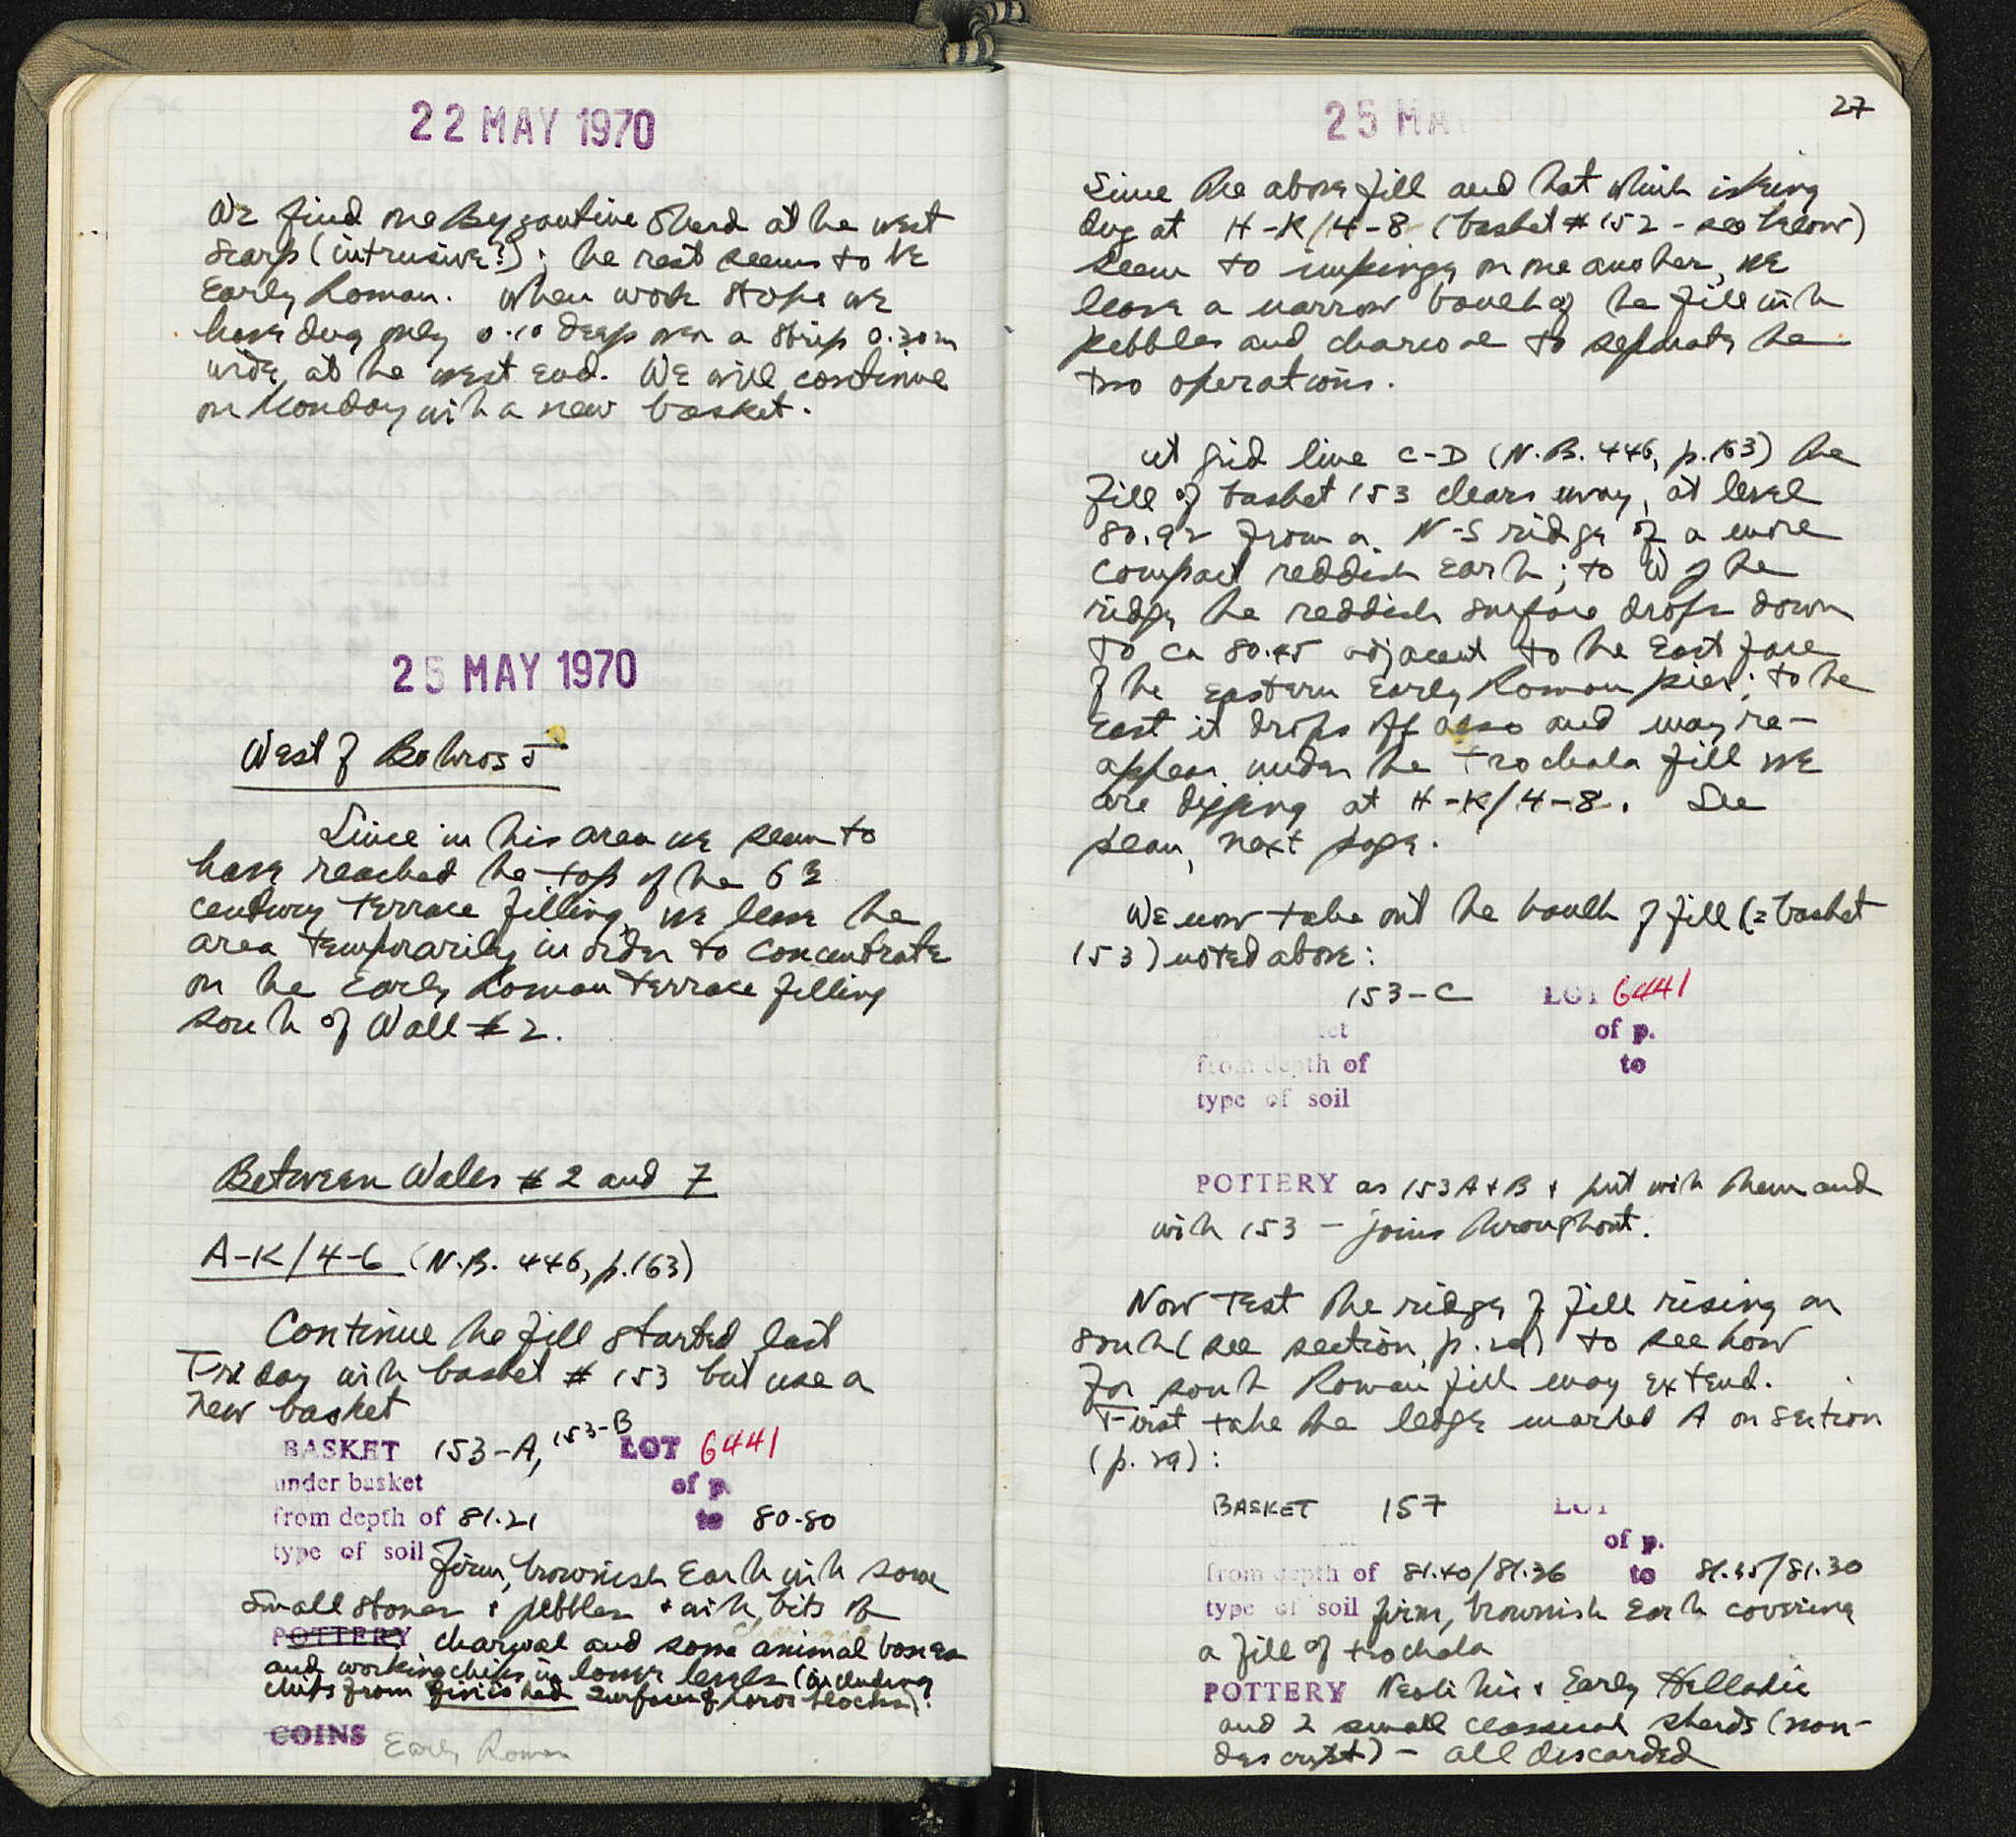 22 MAY 1970
We find one Byzantine sherd at the west
scarp (intrusive?); the rest seems to be
Early Roman. When work stops we
have dug only 0.10 deep over a strip 0.30m
wide, at the west end. We will continue
on Monday with a new basket.
25 MAY 1970
West of Bothros 5
Since in this area we seem to
have reached the top of the 6th
century terrace filling, we leave the
area temporarily in order to concentrate
on the Early Roman terrace filling
south of Wall #2.
Between Walls #2 and 7
A-K/4-6 (N.B. 446, p.163)
Continue the fill started last
Friday with basket #153 but use a
new basket
BASKET 153-A, 153-B LOT 6441
under basket of p.
from depth of 81.21 to 80.80
type of soil firm, brownish earth with some
small stones + pebbles + with bits of
POTTERY charcoal and some animal bones
and working chips in lower levels (including
chips from finished surface of poros blocks).
COINS Early Roman
27
25 MA
Since the above fill and that which is being
dug at H-K/4-8 (basket #152 - see below)
seem to impinge on one another, we
leave a narrow baulk of the fill with
pebbles and charcoal to separate the
two operations.
At grid line C-D (N.B. 446, p.163) the
fill of basket 153 clears away, at level
80.92 from a N-S ridge of a more
compact reddish earth; to W of the
ridge the reddish surface drops down
to ca 80.45 adjacent to the East face
of the eastern Early Roman pier; to the
East it drops off also and may re-
appear under the trochala fill we
are digging at H-K/4-8. See
plan, next page.
We now take out the baulk of fill (= basket
153) noted above:
153-C LOT 6441
et of p.
from depth of to
type of soil
POTTERY as 153A+B + put with them and
with 153 - joins throughout.
Now test the ridge of fill rising on
south (see section, p. 29) to see how
far south Roman fill may extend.
First take the ledge marked A on section
(p. 29):
BASKET 157 LOT
of p.
from depth of 81.40/81.36 to 81.35/81.30
type of soil firm, brownish earth covering
a fill of trochala
POTTERY Neolithic + Early Helladic
and 2 small classical sherds (non-
descript) - all discarded